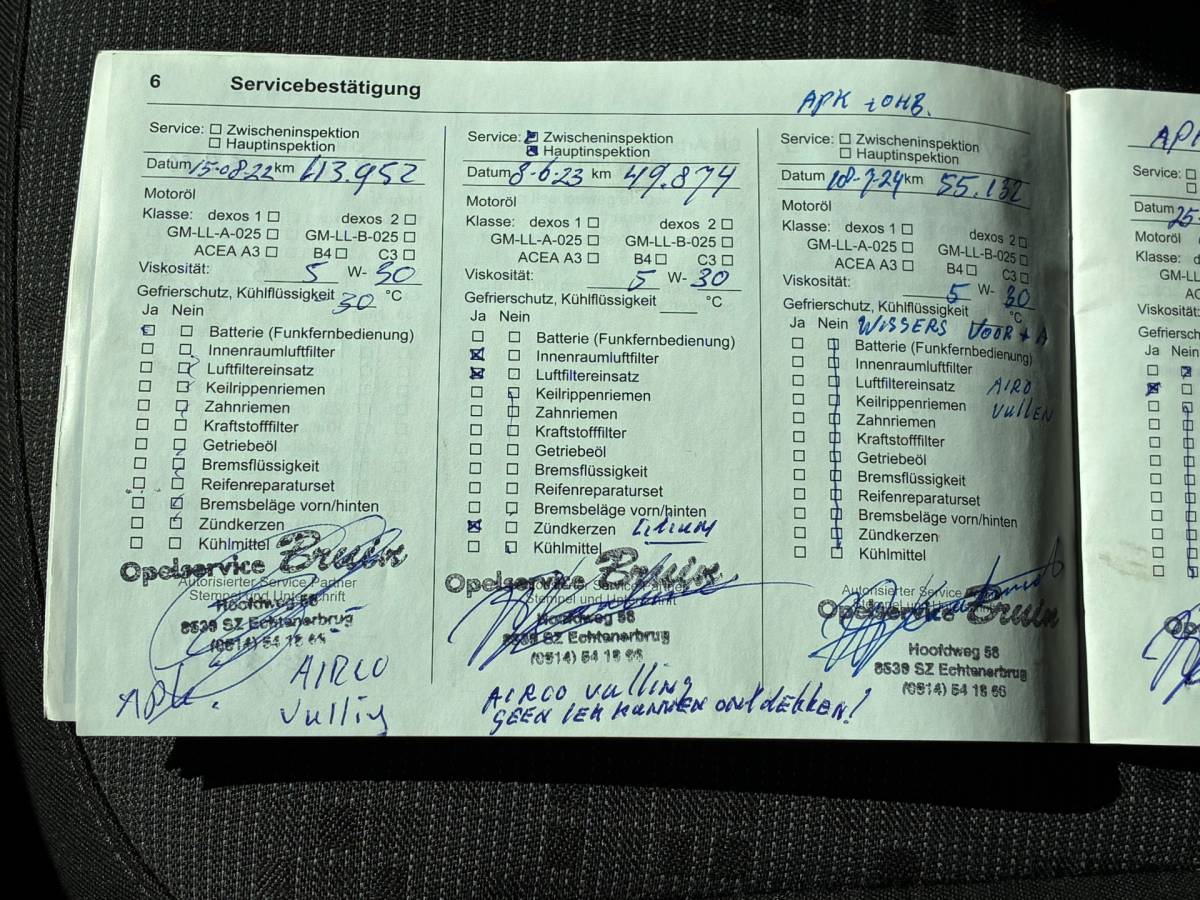 6 Servicebestätigung
APK + OHB.
Service: Zwischeninspektion
Hauptinspektion
Datum 15-08-22 km 43.952
Motoröl
Klasse: dexos 1 dexos 2
GM-LL-A-025 GM-LL-B-025
ACEA A3 B4 C3
Viskosität: 5 W- 30
Gefrierschutz, Kühlflüssigkeit 30 °C
Ja Nein
Batterie (Funkfernbedienung)
Innenraumluftfilter
Luftfiltereinsatz
Keilrippenriemen
Zahnriemen
Kraftstofffilter
Getriebeöl
Bremsflüssigkeit
Reifenreparaturset
Bremsbeläge vorn/hinten
Zündkerzen
Kühlmittel
Opelservice Bruin
Autorisierter Service Partner
Stempel und Unterschrift
Hoofdweg 58
8539 SZ Echtenerbrug
(0514) 54 18 66
APK. AIRCO
Vulling
Service: Zwischeninspektion
Hauptinspektion
Datum 8-6-23 km 49.874
Motoröl
Klasse: dexos 1 dexos 2
GM-LL-A-025 GM-LL-B-025
ACEA A3 B4 C3
Viskosität: 5 W- 30
Gefrierschutz, Kühlflüssigkeit °C
Ja Nein
Batterie (Funkfernbedienung)
Innenraumluftfilter
Luftfiltereinsatz
Keilrippenriemen
Zahnriemen
Kraftstofffilter
Getriebeöl
Bremsflüssigkeit
Reifenreparaturset
Bremsbeläge vorn/hinten
Zündkerzen
Kühlmittel
Opelservice Bruin
Stempel und Unterschrift
Hoofdweg 58
8539 SZ Echtenerbrug
(0514) 54 18 66
AIRCO vulling
GEEN LEK KUNNEN ontdekken!
Service: Zwischeninspektion
Hauptinspektion
Datum 18-7-24 km 55.132
Motoröl
Klasse: dexos 1 dexos 2
GM-LL-A-025 GM-LL-B-025
ACEA A3 B4 C3
Viskosität: 5 W- 30
Gefrierschutz, Kühlflüssigkeit °C
Ja Nein WISSERS VOOR + A
Batterie (Funkfernbedienung)
Innenraumluftfilter
Luftfiltereinsatz AIRO
Keilrippenriemen vullen
Zahnriemen
Kraftstofffilter
Getriebeöl
Bremsflüssigkeit
Reifenreparaturset
Bremsbeläge vorn/hinten
Zündkerzen
Kühlmittel
Opelservice Bruin
Hoofdweg 58
8539 SZ Echtenerbrug
(0514) 54 18 66
Service:
Datum
Motoröl
Klasse:
Viskosität:
Ja Nein